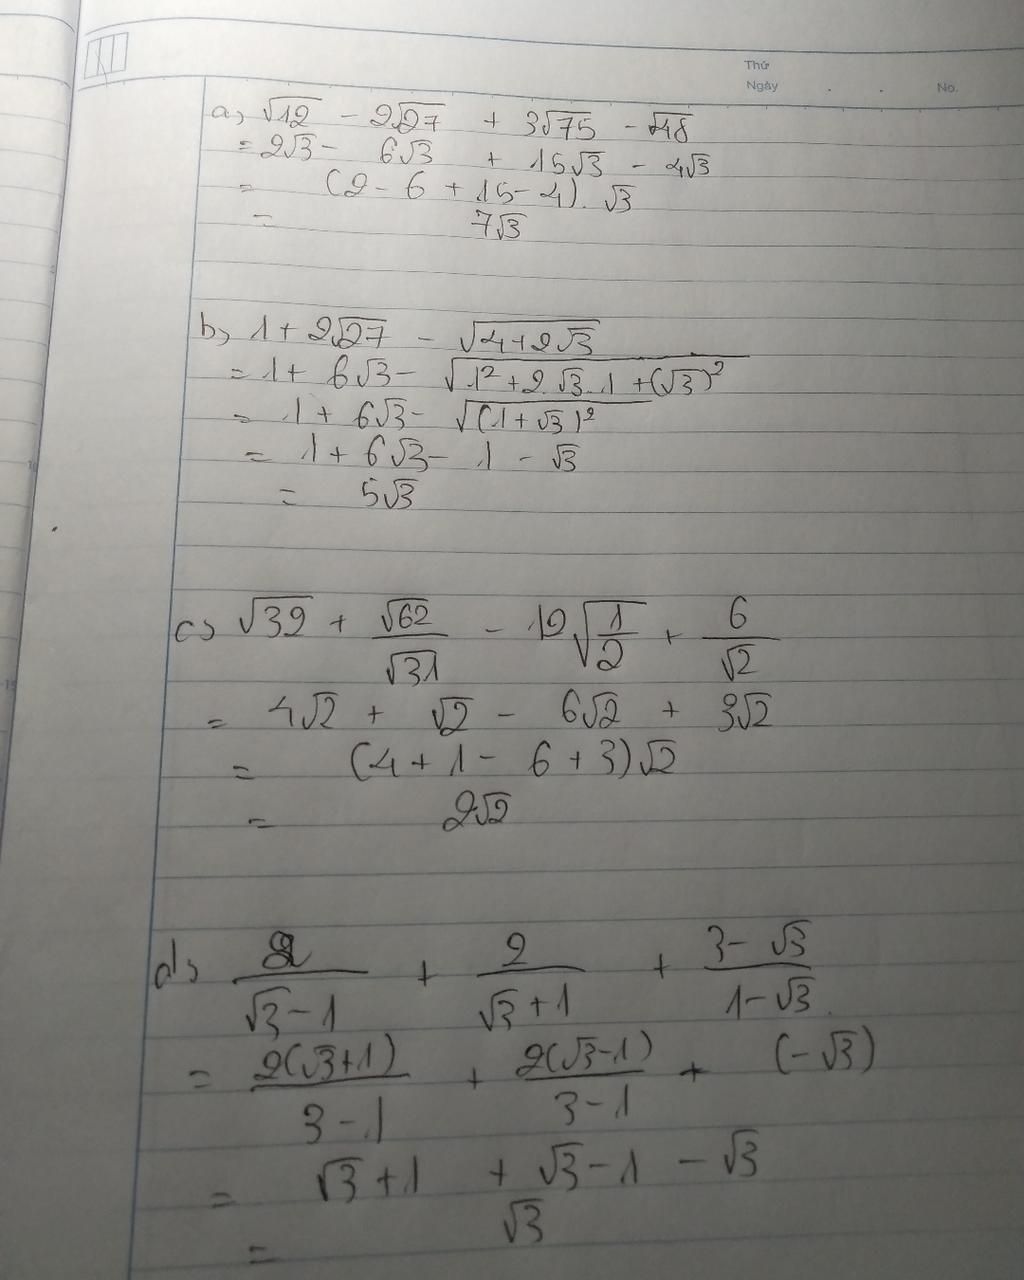 Thứ
Ngày . . No.
a, √12 - 2√27 + 3√75 - √48
= 2√3 - 6√3 + 15√3 - 4√3
= (2 - 6 + 15 - 4) . √3
= 7√3
b, 1 + 2√27 - √(4+2√3)
= 1 + 6√3 - √(1² + 2.√3.1 + (√3)²)
= 1 + 6√3 - √((1+√3)²)
= 1 + 6√3 - 1 - √3
= 5√3
c, √32 + √62/√31 - 12√(1/2) + 6/√2
= 4√2 + √2 - 6√2 + 3√2
= (4 + 1 - 6 + 3)√2
= 2√2
d, 2/(√3-1) + 2/(√3+1) + (3-√3)/(1-√3)
= 2(√3+1)/(3-1) + 2(√3-1)/(3-1) + (-√3)
= √3+1 + √3-1 - √3
= √3